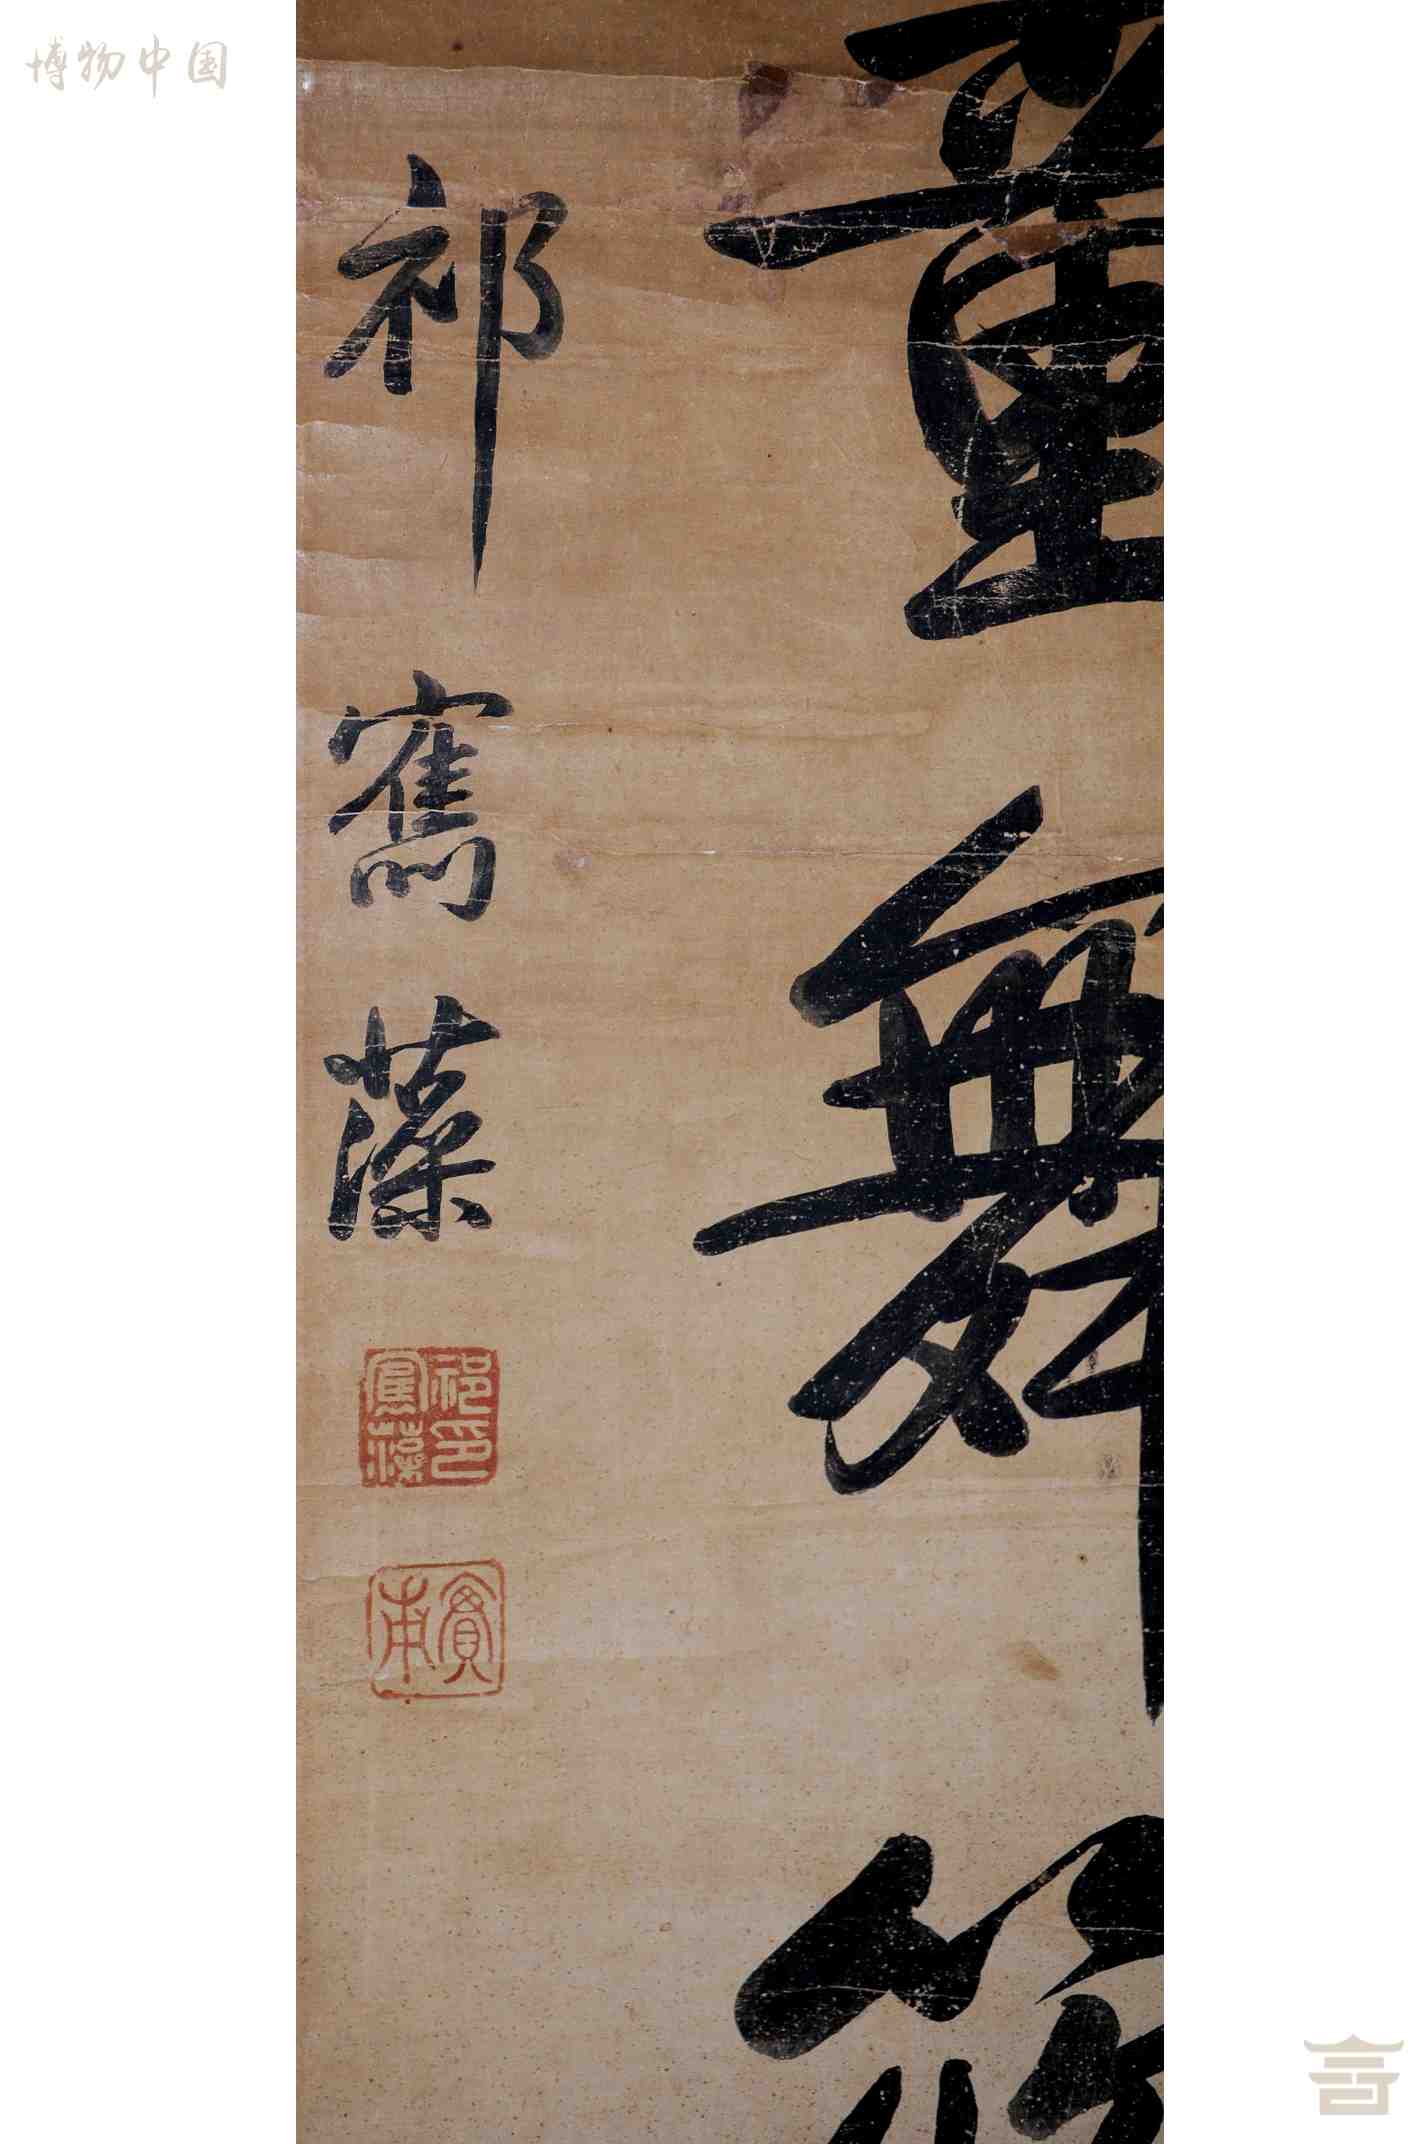 博物中国
舞
祁寯藻
祁寯藻印
實甫